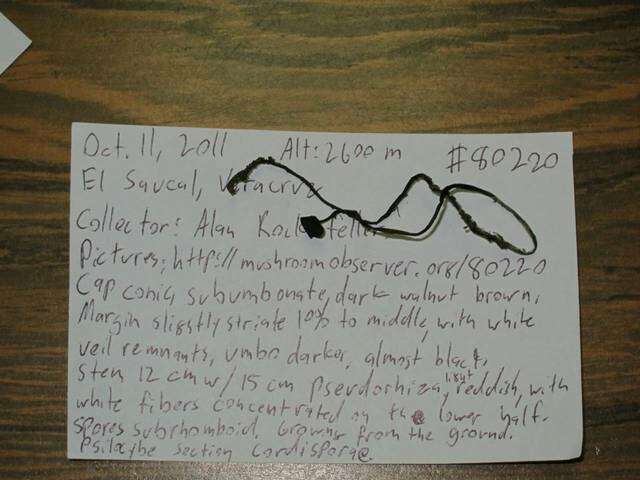 Oct. 11, 2011 Alt: 2600 m #80220
El Saucal, Veracruz
Collector: Alan Rockefeller
Pictures: http://mushroomobserver.org/80220
Cap conic, subumbonate, dark walnut brown,
Margin slightly striate 10% to middle, with white
veil remnants, umbo darker, almost black,
Stem 12 cm w/ 15 cm pseudorhiza, light reddish, with
white fibers concentrated on the lower half.
Spores subrhomboid. Growing from the ground.
Psilocybe section Cordisporae